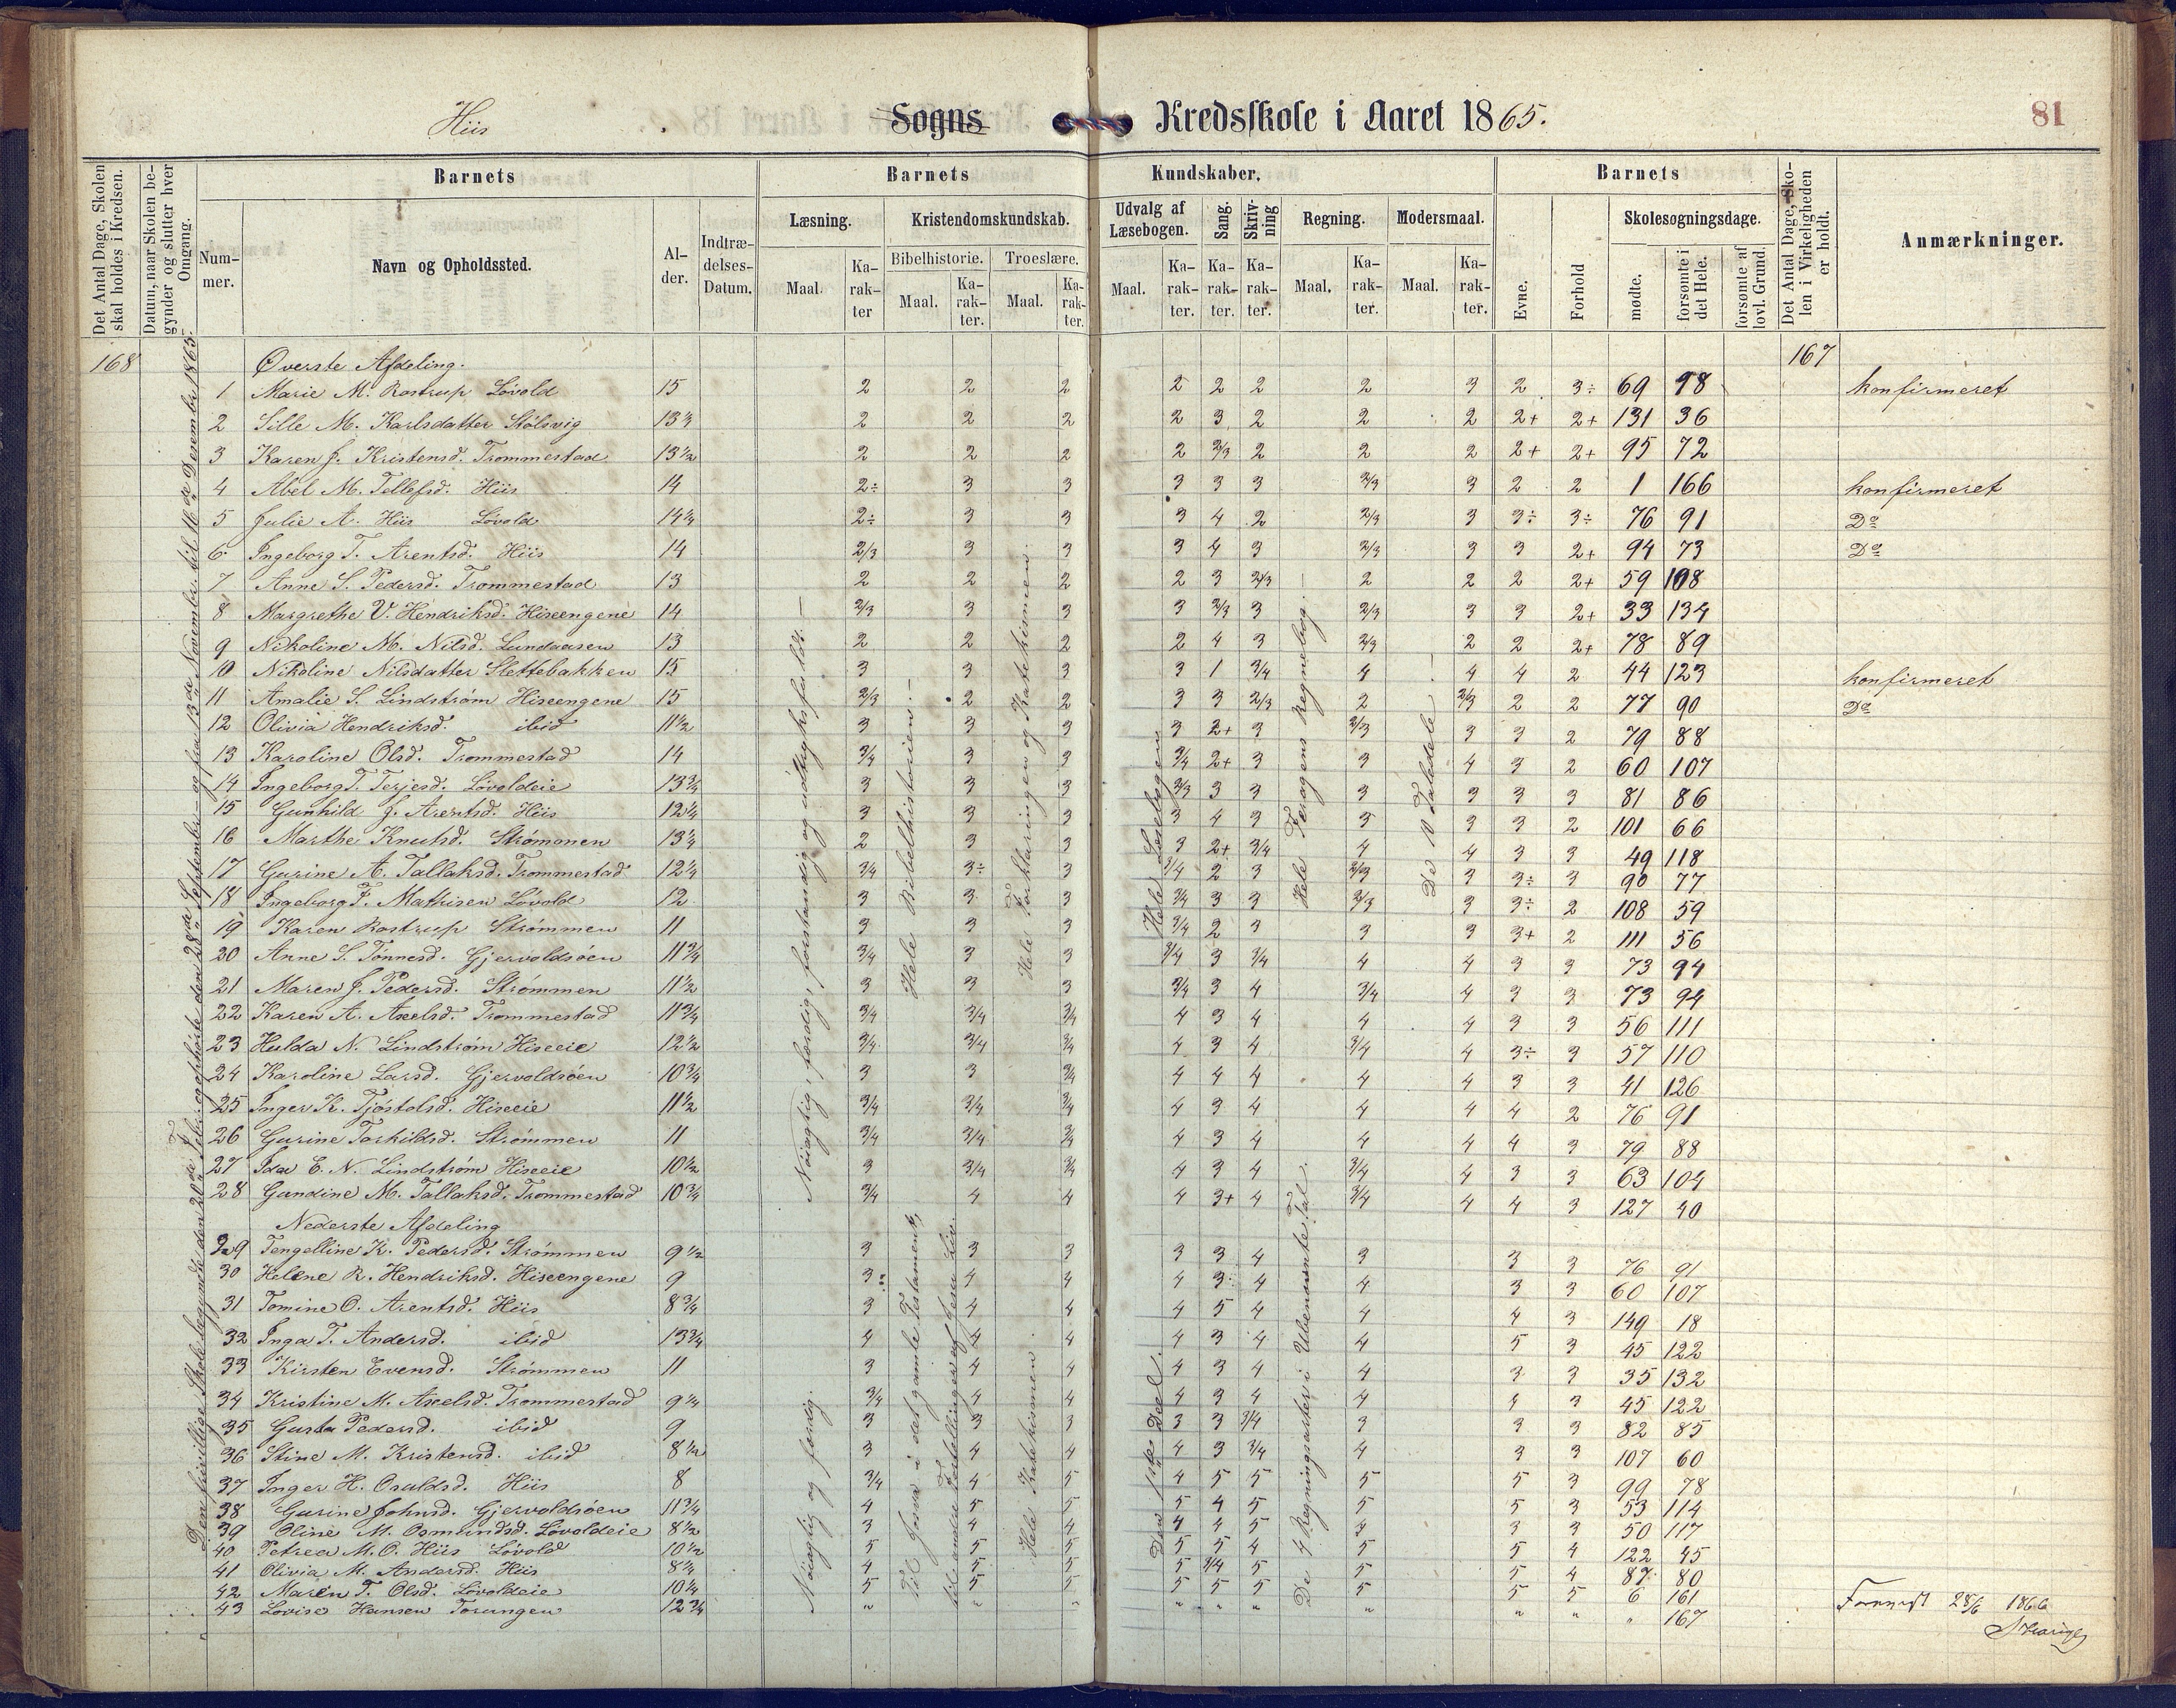 Hiis Sogns Kredsskole i Aaret 1865.
81
Det Antal Dage, Skolen skal holdes i Kredsen.
Datum, naar Skolen begynder og slutter hver Omgang.
Barnets
Nummer.
Navn og Opholdssted.
Alder.
Indtrædelses-Datum.
Barnets Kundskaber.
Læsning.
Maal.
Karakter
Kristendomskundskab.
Bibelhistorie.
Maal.
Karakter.
Troeslære.
Maal.
Karakter.
Udvalg af Læsebogen.
Maal.
Karakter.
Sang.
Karakter.
Skrivning
Karakter.
Regning.
Maal.
Karakter.
Modersmaal.
Maal.
Karakter.
Barnets
Evne.
Forhold
Skolesøgningsdage.
mødte.
forsømte i det Hele.
forsømte af lovl. Grund.
Det Antal Dage, Skolen i Virkeligheden er holdt.
Anmærkninger.
168 Øverste Afdeling. 167
1 Marie M. Rostrup Løvold 15 2 2 2 2 2 2 2 3 2 3÷ 69 98 konfirmeret
2 Sille M. Karlsdatter Stølsvig 13¼ 2 2 2 2 3 2 2 2 2+ 2+ 131 36
3 Karen J. Kristensd. Trommestad 13½ 2 2 2 2 2/3 2 2 2 2+ 2+ 95 72
4 Abel M. Tellefsd. Hiis 14 2÷ 3 3 3 3 3 2/3 3 2 2 1 166 konfirmeret
5 Julie A. Hiis Løvold 14¼ 2÷ 3 3 3 4 2 2/3 3 3÷ 3÷ 76 91 Do
6 Ingeborg T. Arentsd. Hiis 14 2/3 3 3 3 4 3 2/3 3 3 2+ 94 73 Do
7 Anne S. Pedersd. Trommestad 13 2 2 2 2 3 2/3 2 2 2 2+ 59 108
8 Margrethe V. Hendriksd. Hiseengene 14 2/3 3 3 3 2/3 3 2/3 3 3 2+ 33 134
9 Nikoline M. Nilsd. Lundaasen 13 2 2 2 2 4 3 2/3 2 2 2+ 78 89
10 Nikoline Nilsdatter Slettebakken 15 3 3 3 3 1 3/4 4 4 4 2 44 123 konfirmeret
11 Amalie S. Lindstrøm Hiseengene 15 2/3 2 2 3 3 2/3 2 2/3 2 2 77 90 Do
12 Olivia Hendriksd. ibid 11½ 3 3 3 3 2+ 3 2/3 3 3 2 79 88
13 Karoline Olsd. Trommestad 14 3/4 3 3 3/4 2+ 3 3 4 3 2 60 107
14 Ingeborg T. Terjesd. Løvoldeie 13¾ 3 3 3 2/3 3 3 3 3 3 3 81 86
15 Gunhild J. Arentsd. Hiis 12¼ 3 3 3 3 4 3 3 3 3 2 101 66
16 Marthe Knutsd. Strømmen 13¼ 2 3 3 3 2+ 3/4 4 4 3 3 49 118
17 Gurine A. Tallaksd. Trommestad 12¼ 3/4 3÷ 3 3/4 2 3 2/3 3 3÷ 3 90 77
18 Ingeborg F. Mathisen Løvold 12 3 3 3 3/4 3 3 2/3 3 3÷ 2 108 59
19 Karen Rostrup Strømmen 11 3 3 3 3/4 2 3 3 3 3+ 2 111 56
20 Anne S. Tønnesd. Gjervoldsøen 11¾ 3/4 3 3 3/4 3 3/4 4 4 3 3 73 94
21 Maren J. Pedersd. Strømmen 11½ 3 3 3 3/4 3 4 3/4 4 3 3 73 94
22 Karen A. Axelsd. Trommestad 11¾ 3/4 3/4 3/4 4 3 4 4 4 3 3 56 111
23 Hulda N. Lindstrøm Hiseeie 12½ 3/4 3/4 3/4 4 3 4 3/4 4 3÷ 3 57 110
24 Karoline Larsd. Gjervoldsøen 10¾ 3 3 3/4 4 4 4 4 4 3 3 41 126
25 Inger K. Tjøstolsd. Hiseeie 11½ 3/4 3/4 3/4 4 3 4 4 4 4 2 76 91
26 Gurine Torkildsd. Strømmen 11 3/4 3/4 3/4 4 3 4 4 4 4 3 79 88
27 Ida E. N. Lindstrøm Hiseeie 10½ 3 3/4 3/4 4 3 4 3/4 4 3 3 63 104
28 Gundine M. Tallaksd. Trommestad 10¾ 3/4 4 4 4 3+ 4 3/4 4 4 3 127 40
Nederste Afdeling
29 Tengelline K. Pedersd. Strømmen 9½ 3 3 3 3 3 4 3 3 3 76 91
30 Helene R. Hendriksd. Hiseengene 9 3 4 4 4 3 4 4 3 3 60 107
31 Tomine O. Arentsd. Hiis 8¾ 3 4 4 4 5 4 4 4 3 149 18
32 Inga T. Andersd. ibid 13¾ 4 4 4 4 3 4 4 5 3 45 122
33 Kirsten Evensd. Strømmen 11 3 4 4 4 3 4 4 3 3 35 132
34 Kristine M. Axelsd. Trommestad 9¼ 3/4 4 4 4 3 4 4 4 3 45 122
35 Gusta Pedersd. ibid 9 3 3 3 3 3 3/4 3 3 3 82 85
36 Stine M. Kristensd. ibid 8½ 3 4 4 4 3 3/4 4 3 3 107 60
37 Inger H. Osuldsd. Hiis 8 3/4 4 5 4 5 5 5 5 3 99 78
38 Gurine Johnsd. Gjervoldsøen 11¾ 4 5 5 5 4 5 5 5 3 53 114
39 Oline M. Osmundsd. Løvoldeie 8½ 3 4 4 4 4 5 4 3 3 50 117
40 Petrea M. O. Hiis Løvold 10½ 5 5 5 5 5 4 5 5 4 122 45
41 Olivia M. Andersd. Hiis 8¼ 4 5 5 5 3/4 5 5 5 4 87 80
42 Maren T. Olsd. Løvoldeie 10¼ 5 5 5 5 5 5 5 5 5 6 161
43 Lovise Hansen Torungen 12¾ " " " " " " " " " " 167
Den frivillige Skole begyndte den 20de Febr. og ophørte den 28de September og fra 13de Novembr. til 16de Desembr. 1865.
Nøiagtig, færdig, forstandig og udtryksfuldt.
Hele Bibelhistorien.
Hele Forklaringen og Katekismen.
Hele Læsebogen
Hele Feragens Regnebog.
De 10 Taledele.
Nøiagtig og færdig.
Til Josva i det gamle Testamente,
til andre Fortællinger af Jesu Liv.
Hele Katekismen.
Den 1ste Deel.
De 4 Regningsarter i Ubenævnte Tal.
28/6 1866